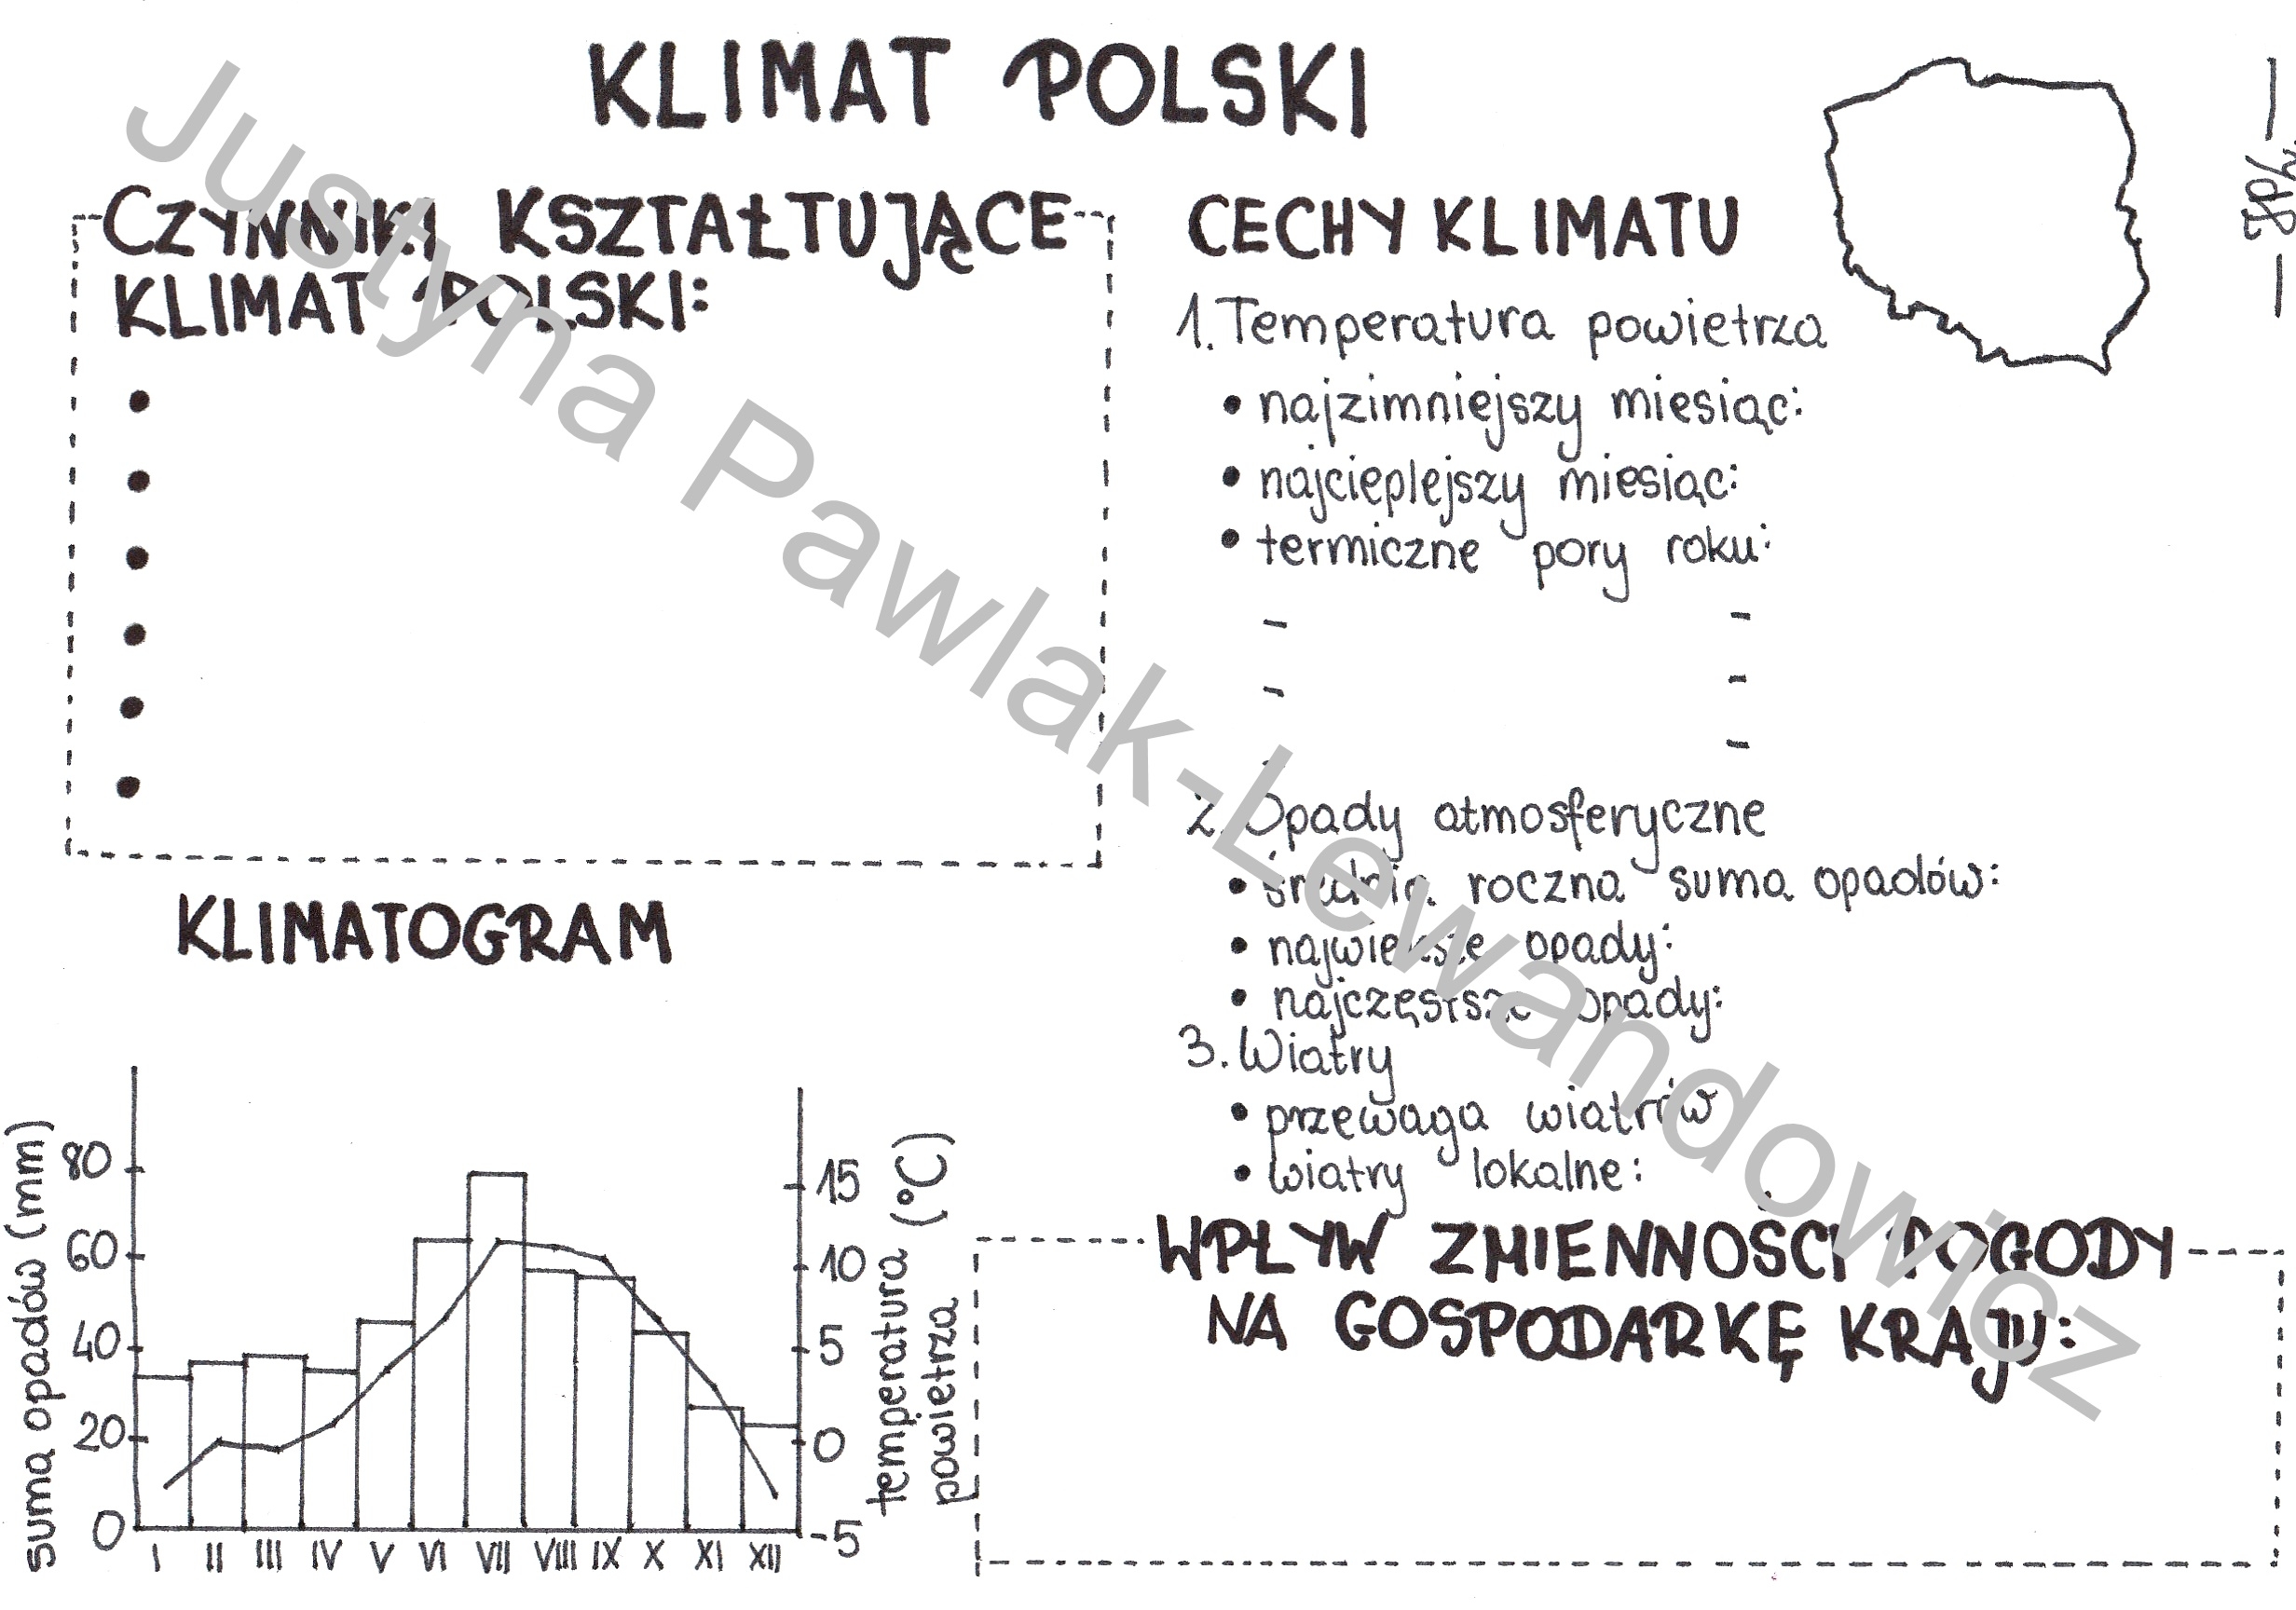 KLIMAT POLSKI
CZYNNIKI KSZTAŁTUJĄCE
KLIMAT POLSKI:
CECHY KLIMATU
1. Temperatura powietrza
• najzimniejszy miesiąc:
• najcieplejszy miesiąc:
• termiczne pory roku:
-
-
-
-
-
2. Opady atmosferyczne
• średnia roczna suma opadów:
• największe opady:
• najczęstsze opady:
3. Wiatry
• przewaga wiatrów
• wiatry lokalne:
KLIMATOGRAM
suma opadów (mm)
80
60
40
20
0
I II III IV V VI VII VIII IX X XI XII
15
10
5
0
-5
temperatura (°C)
powietrza
WPŁYW ZMIENNOŚCI POGODY
NA GOSPODARKĘ KRAJU:
Justyna Pawlak-Lewandowicz